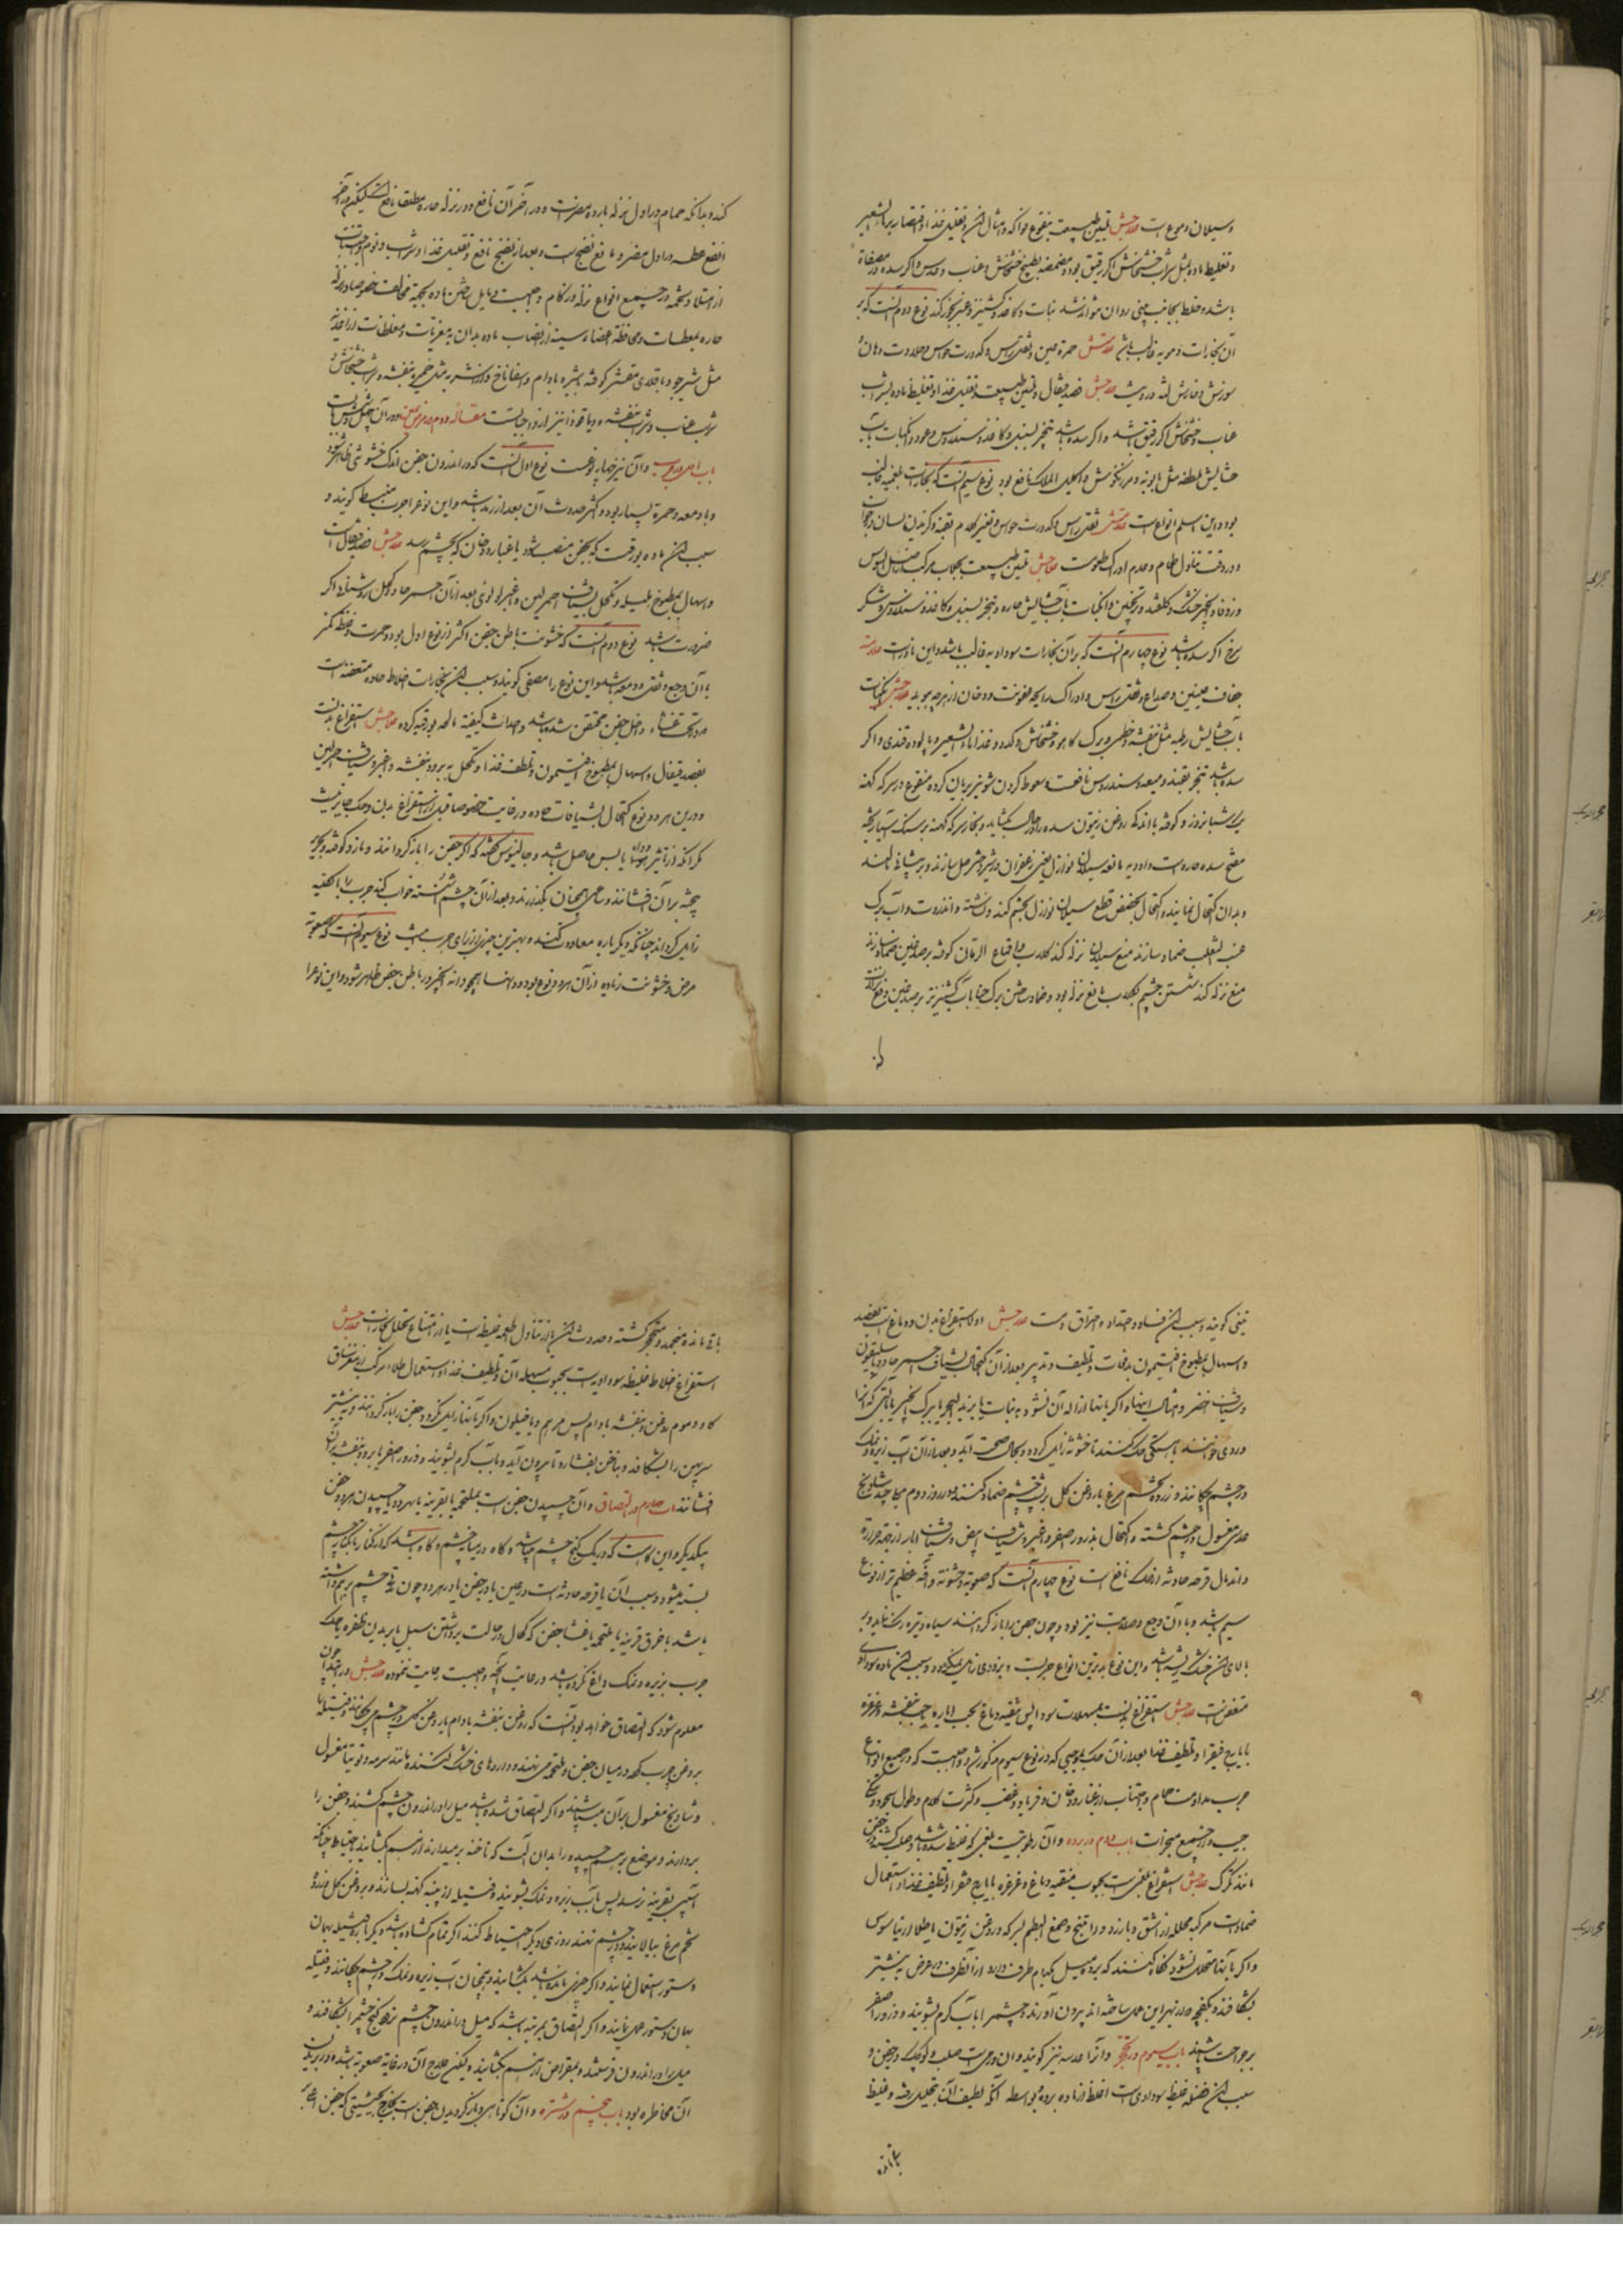 وسیلان دموع است علاجش تلیین طبیعت بنقوع فواکه و امثال آن و تقلیل غذا و اقتصار بر ماءالشعیر
و تغلیظ ماده بمثل شراب خشخاش اگر رقیق بود و مضمضه بطبیخ خشخاش و عناب و عدس و اگر سده در مصفاة
باشد و خلط بجانب بینی روان نتواند شد نبات و کاغذ و کشنیز و عنبر بخور کند نوع دوم آنست که بر
آن بخارات دمویه غالب باشد علامتش حمرة عین و ثقل راس و کدورت حواس و حلاوت دهان و
سوزش و خارش لثه و ریش علاجش فصد قیفال و تلیین طبیعت و تقلیل غذا و تغلیظ ماده بشراب
عناب و خشخاش اگر رقیق باشد و اگر سده باشد تبخیر بسنبل و کاغذ و سندروس و عود و انکباب بآب
حشایش ملطفه مثل بابونه و مرزنگوش و اکلیل الملک نافع بود نوع سیم آنست که بخارات بلغمیه غالب
بود و این اسلم انواع است علامتش ثقل راس و کدورت حواس و تغیر کلام بغنه و گزیدن لسان در خواب
و در وقت تناول طعام و عدم ادراک طعوم است علاجش تلیین طبیعت بجلاب مرکب از اصل السوس
و زوفا و انجیر خشک و گلقند و ترنجبین و انکباب بآب حشایش حاره و تبخیر بسنبل و کاغذ و سندروس و شکر
سرخ اگر سده باشد نوع چهارم آنست که بر آن بخارات سوداویه غالب باشد و این نادر است علامتش
جفاف عینین و صداع و ثقل راس و ادراک رایحه عفونت و دخان از هر چه بوید علاجش انکباب
بآب حشایش رطبه مثل بنفشه و خطمی و برگ کاهو و خشخاش و کدو و غذا ماءالشعیر و پالوده قندی و اگر
سده باشد تبخیر بقند و میعه و سندروس نافعست و سعوط کردن شونیز بریان کرده منقوع در سرکه کهنه
یک شبانروز و کوفته با اندک روغن زیتون سده را در حال بکشاید و بخار سرکه کهنه بر سنگ آسیا ریخته
مفتح سده حاره است و ادویه مانعه سیلان نوازل یعنی زعفران و شیر و مر حل سازند و بر پیشانی نهند
و بدان اکتحال نمایند و اکتحال بحضض قطع سیلان نوازل بچشم کند و نشاسته و انزروت و آب برگ
عنب الثعلب ضماد سازند منع سیلان نزله کند گلاب و اقماع الرمان کوفته بر صدغین ضماد سازند
منع نزله کند شستن چشم بگلاب مانع نزله بود و ضماد خشن برگ حنا بآب کشنیز تر بر صدغین و دفع نزلات
کند و بدانکه حمام در اول نزله بارده مضر است و در آخر آن نافع و در نزله حاره مطلقا نافع است لیکن در آخر
انفع عطسه در اول مضر و مانع نضج است و بعد از نضج نافع و تقلیل غذا و شراب و نوم و اجتناب
از امتلا و تخمه در جمیع انواع نزله و زکام واجبست و مایل ساختن ماده بجهة مخالف خصوصا در نزله
حاره بمعطسات و محافظة اعضاء سینه از انصباب ماده بدان بمغریات و مغلظات از اغذیه
مثل شیر جو و باقلای مقشر کوفته بشیره بادام و اسفاناخ و از اشربه مثل خمیره بنفشه و شراب خشخاش و
شراب عناب و شراب بنفشه و دیاقوذا نیز از واجباتست مقاله دوم در امراض عین و در آن چهل و شش باب است
باب اول در جرب و آن نیز چهار نوعست نوع اول آنست که در اندرون جفن اندک خشونتی ظاهر شود
و با دمعه و حمرة بسیار بود و اکثر حدوث آن بعد از رمد باشد و این نوع را جرب منبسط گویند و
سبب آن ماده بورقیست که بجفن منصب شود یا غبار و دخان که بچشم رسد علاجش فصد قیفال است
و اسهال بمطبوخ هلیله و تکحل بشیاف احمر لین و اغبر لولوی بعد از آن احمر حاد و کحل روشنایا اگر
ضرورت باشد نوع دوم آنست که خشونت باطن جفن اکثر از نوع اول بود و حمرت و غلظ کمتر
با آن وجع و ثقل و دمعه باشد و این نوع را مصفی گویند و سبب آن بخارات اخلاط حاده متعفنه است
و در تحت غشاء داخل جفن محتقن شده باشد و احداث کیفیة مالحه بورقیه کرده علاجش استفراغ بدن است
بفصد قیفال و اسهال بمطبوخ افتیمون و تلطف غذا و تکحل به برود بنفشه و اغبر و شیاف احمر لین
و درین هر دو نوع اکتحال بشیافات حاده در غایت خصوصا قبل از استفراغ بدن و حک جایز نیست
مگر آنکه از تاثیر دوا مایوس حاصل باشد و جالینوس گفته که اگر جفن را باز گردانند و مازو کوفته و بحریر
بیخته بر آن افشانند و ساعتی همچنان بگذارند و بعد از آن چشم شسته خواب کند جرب را بالکلیه
زایل گرداند چنانکه دیگر باره معاودت نکند و بهترین چیزها از برای جرب میباشد نوع سیوم آنست که صعوبة
مرض و خشونت زیاده از آن هر دو نوع بود و مانند انشقاق همچو دانه انجیر در باطن جفن ظاهر شود و این نوع را
تینی گویند و سبب آن فساد و احتداد و احتراق دم است علاجش اولا استفراغ بدن و دماغ است بفصد
و اسهال بمطبوخ افتیمون بدفعات و تلطیف و تدبیر بعد از آن اکتحال بشیاف احمر حاد و باسلیقون
و شیاف اخضر و امثال اینها و اگر باینها ازاله آن نشود به نبات یا بزبدالبحر یا برگ انجیر یا بآلتی که آنرا
وردی خوانند بآهستگی حک کنند تا خشونة زایل گردد و بحال صحت آید و بعد از آن آب زیره و نمک
در چشم چکانند و زرده تخم مرغ با روغن گل بر پشت چشم ضماد کنند و در روز دوم میل چند شادنج
عدسی مغسول در چشم کشند و اکتحال بذرور اصفر و اغبر و شیاف ابیض و شیاف ابار از جهة حرارة
و اندمال قرحه حادثه از حک نافع است نوع چهارم آنست که صعوبة و خشونة و آفه عظیم‌تر از نوع
سیم باشد و با آن وجع و صلابت نیز بود و چون جفن را باز گردانند سیاه و تیره رنگ نماید و بر
بالای آن خشک ریشه باشد و این نوع بدترین انواع جربست و بزودی زایل نمیگردد و سبب آن ماده سوداوی
متعفن است علاجش استفراغ بدنست بمسهلات سودا پس تنقیه دماغ بحب ایاره و حب بنفشه و غرغره
بایارج فیقرا و تلطیف غذا بعد از آن حک بنوعی که در نوع سیوم مذکور شد و واجبست که در جمیع انواع
جرب مداومت حمام و اجتناب از غبار و دخان و فریاد و غضب و کثرت کلام و طول سجود و تنگی
جیب و از جمیع مبخرات باب دوم در برده و آن رطوبتیست بلغمی که غلظ شده باشد و صلب گشته در جفن
مانند تگرگ علاجش استفراغ بلغم است بحبوب منقیه دماغ و غرغره بایارج فیقرا و تلطیف غذا و استعمال
ضمادات مرکبه محلله از اشق و بارزد و راتینج و صمغ البطم بسرکه و روغن زیتون یا طلا اریباسوس
و اگر باینها متحلل نشود نگاه کنند که برده میل بکدام طرف دارد از آنطرف در عرض به نیشتر
بشکافند و بکفچه از بهر این عمل ساخته‌اند بیرون آورند و چشم را بآب گرم بشویند و ذرور اصفر
بر جراحت باشند باب سیوم در تحجر و آنرا عدسه نیز گویند و آن ورمیست صلب و کوچک در جفن و
سبب آن فضله غلیظ سوداویست اغلظ از ماده برده بواسطه آنکه لطیف آن بتحلیل رفته و غلیظ
باقی مانده
باقی مانده و منجمد و متحجر گشته و حدوث آن یا از تناول اطعمه غلیظ است یا از امتناع تحلل بخارات علاجش
استفراغ اخلاط غلیظه سوداویست بحبوب مسهله آن و تلطیف غذا و استعمال طلاء مرکب از مغز ساق
گاو و موم روغن و بنفشه بادام پس مرهم دیاخیلون و اگر باینها زایل نگردد جفن را باز گردانند و به نیشتر
سر پهن را بشکافند و بناخن بفشارند تا بیرون آید و بآب گرم بشویند و ذرور اصفر یا برود بنفشه بر آن
افشانند باب چهارم در التصاق و آن چسپیدن جفن است بملتحمه یا بقرنیه یا بهر دو یا چسپیدن هر دو جفن
بیکدیگر و این گاه است که در یک کنج چشم باشد و گاه در میانه چشم و گاه باشد که از کنار تا بکنار چشم
بسته میشود و سبب آن یا قرحه حادثه است در عین یا در جفن یا در هر دو چون مدتی چشم بر هم داشته
باشد یا خرق قرنیه یا ملتحمه یا غشا جفن که کحال در حالت برداشتن سبل یا بریدن ظفره یا حک
جرب بزیره و نمک داغ نکرده باشد و رعایت آنچه واجبست رعایت ننموده علاجش در ابتدا چون
معلوم شود که التصاق خواهد بود آنست که روغن بنفشه بادام یا روغن گل در چشم میچکانند و فتیله
بروغن چرب کرده در میان جفن و ملتحمه می‌نهند و داروهای خشک کننده مانند سرمه و توتیا مغسول
و شادنج مغسول بر آن میپاشند و اگر التصاق شده باشد میل را در اندرون چشم کنند و جفن را
بردارند و موضع بر هم چسپیده را بدان آلت که ناخنه بر میدارند از هم بکشایند باحتیاط چنانکه
آسیبی بقرنیه نرسد پس بآب زیره و نمک بشویند و فتیله از پنبه کهنه بسازند و بروغن گل و زرده
تخم مرغ بیالایند و در چشم نهند روز دیگر احتیاط کنند اگر تمام گشاده باشد دیگر باره فتیله بهمان
دستور استعمال نمایند و اگر چیزی مانده باشد بکشایند و همچنان آب زیره و نمک در چشم چکانند و فتیله
بهمان دستور عمل نمایند و اگر التصاق بمرتبه باشد که میل در اندرون چشم نرود کنج چشم را بشکافند و
میل را در اندرون فرستند و بمقراض از هم بکشایند و لیکن علاج آن در غایة صعوبة باشد و در بریدن
آن مخاطره بود باب پنجم در شتره و آن کوتاهی و باز گردیدن جفن است بخارج بحیثیتی که جفن اعلی بر